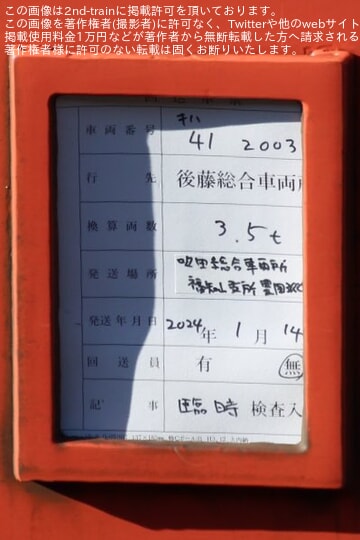 この画像は2nd-trainに掲載許可を頂いております。
この画像を著作権者(撮影者)に許可なく、Twitterや他のwebサイト
掲載使用料金1万円などが著作者から無断転載した方へ請求される
著作権者様に許可のない転載は固くお断りいたします。
車両番号 キハ 41 2003
行先 後藤総合車両所
換算両数 3.5t
発送場所 吹田総合車両所
福知山支所豊岡
発送年月日 2024年1月14
回送員 有 無
記事 臨時 検査入